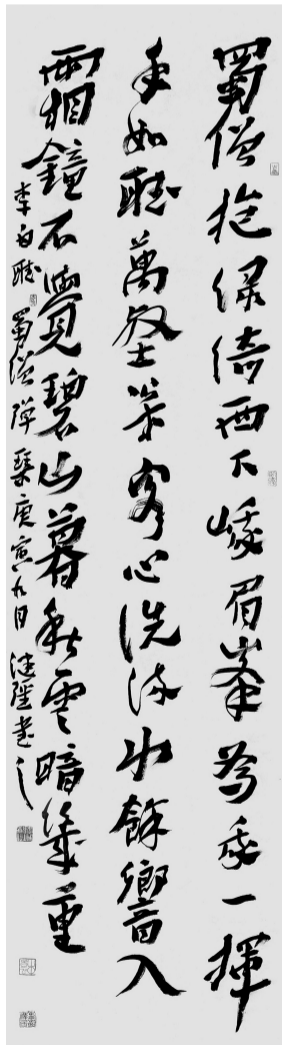 蜀僧抱綠綺西下峨眉峯為我一揮
手如聽萬壑松客心洗流水餘響入
霜鐘不覺碧山暮秋雲暗幾重
李白聽蜀僧彈琴庚寅九月書之